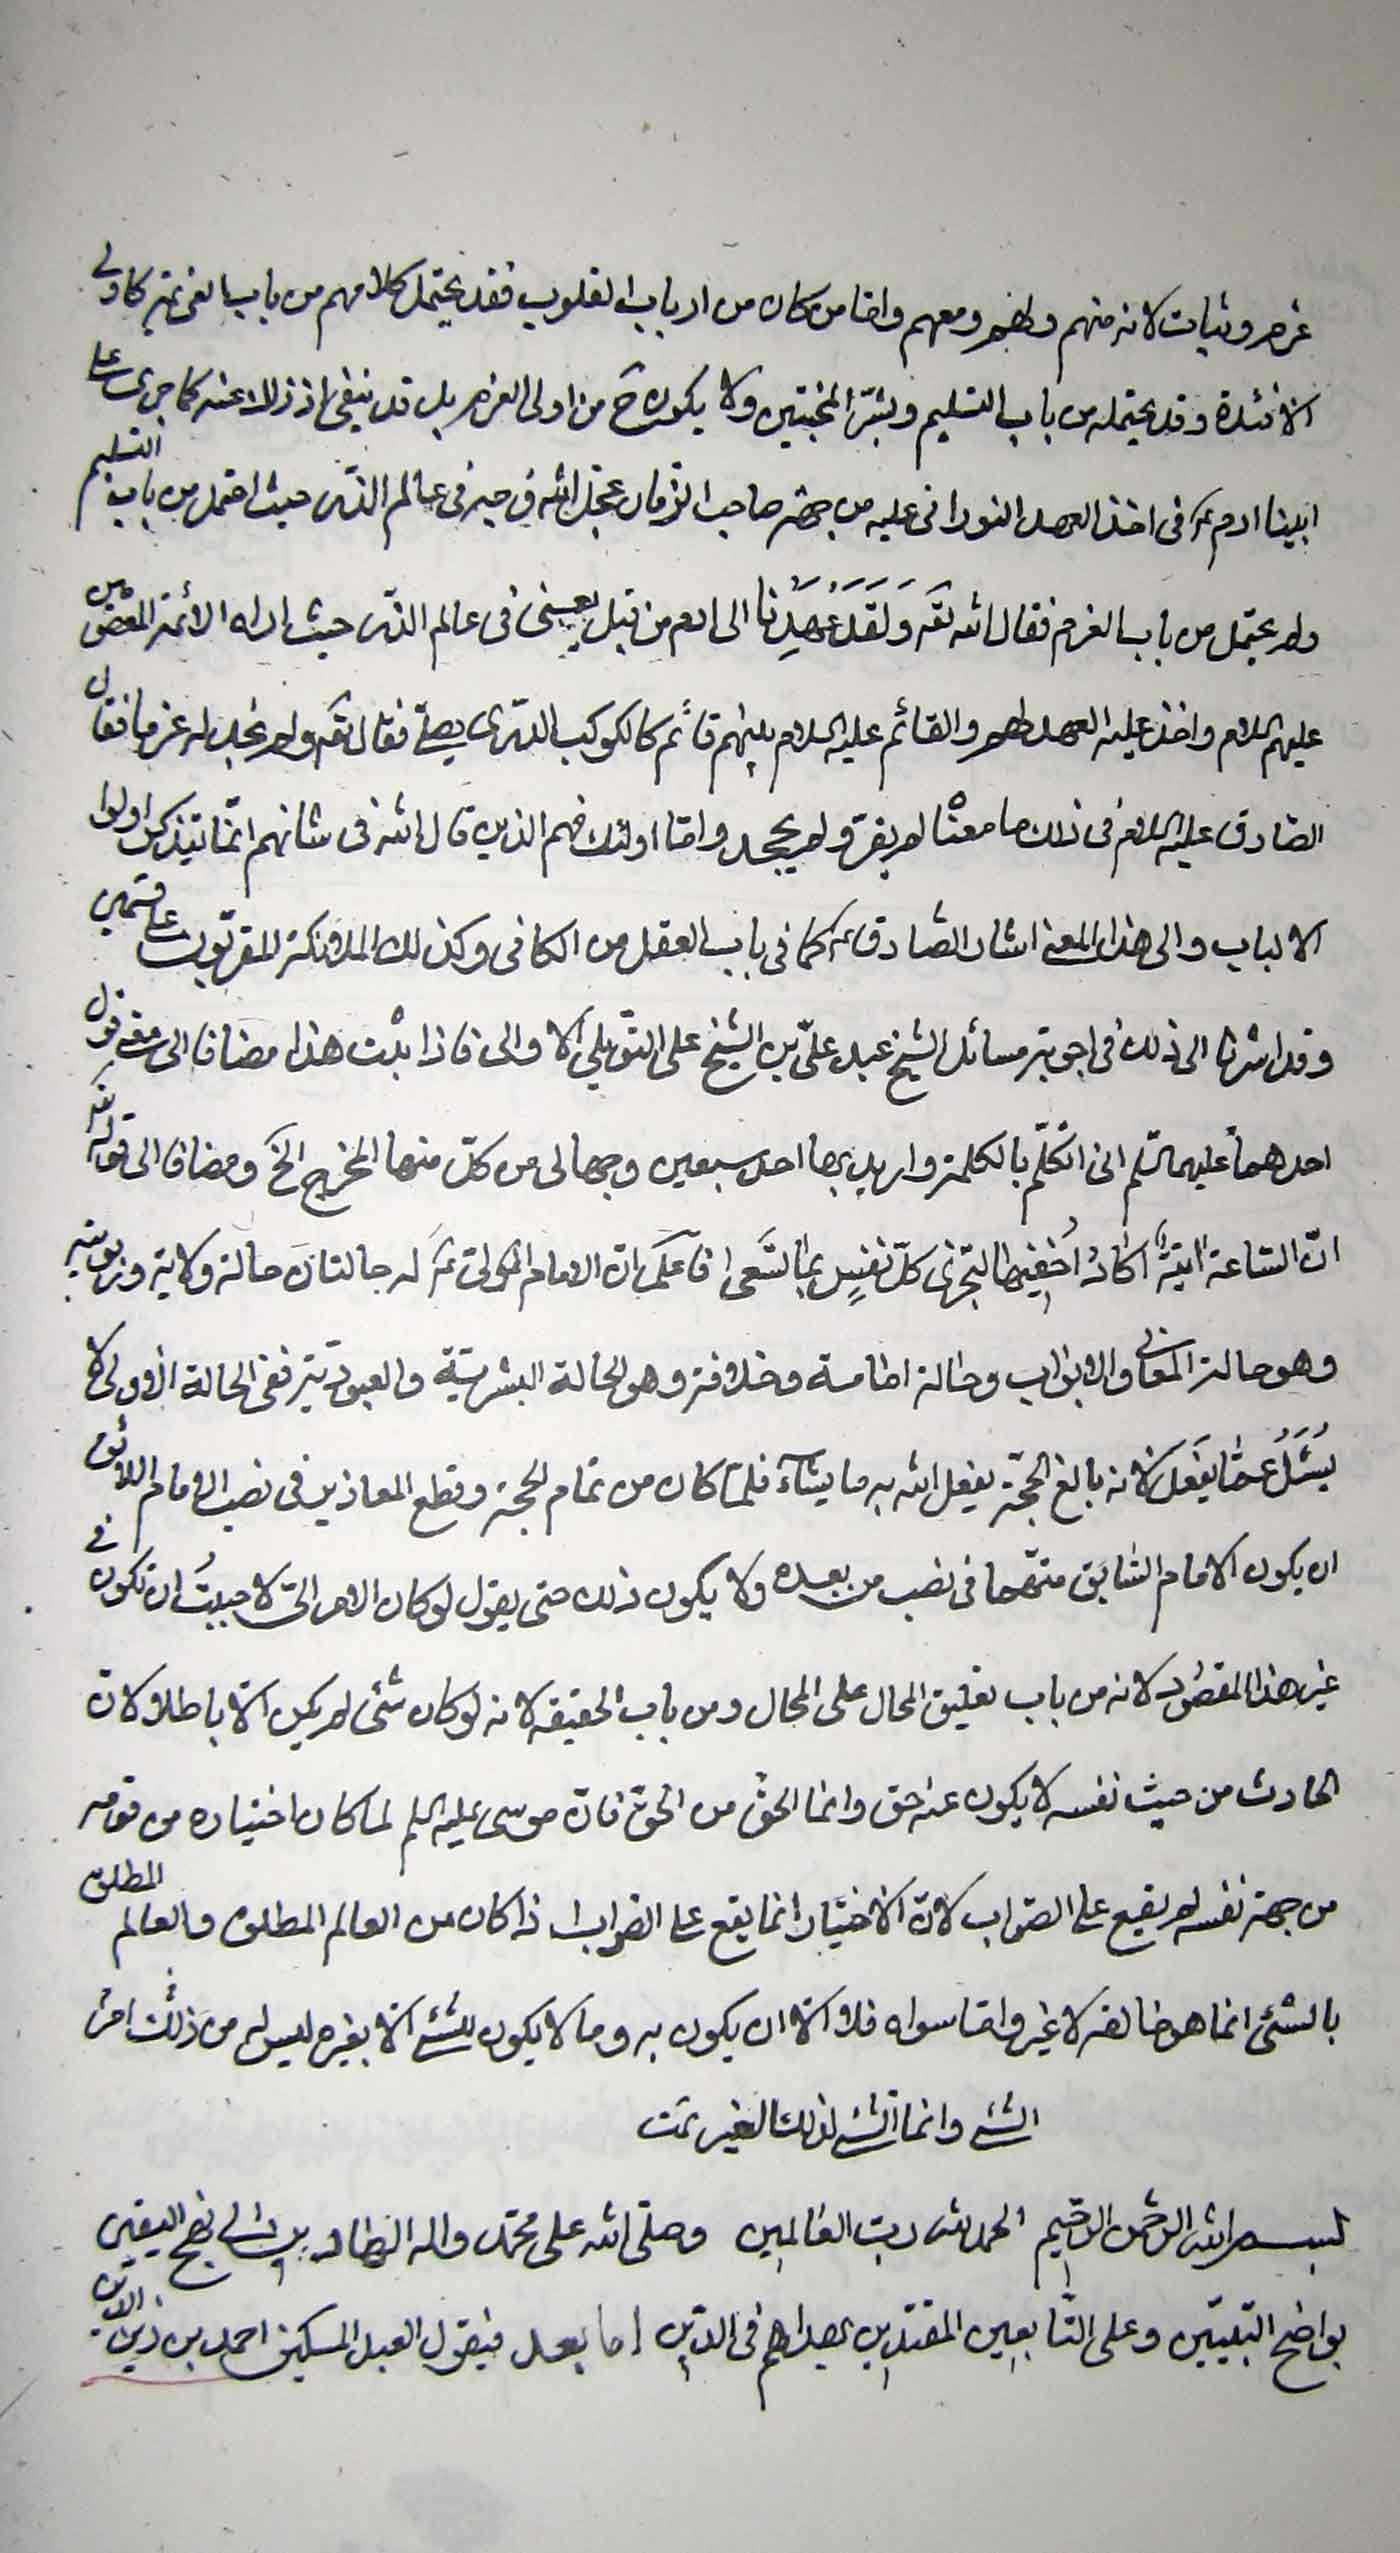 عزم وثبات لانه منهم ولهم ومعهم واما من كان من ارباب القلوب فقد يحتمل كلامهم من باب العزيمة كاولي
الافئدة وقد يحتمله من باب التسليم وبشر المخبتين ولا يكون ح من اولى العزم بل قد ينفى اذ ذلك عنه كما جرى على
ابينا ادم ع في اخذ العهد النورانى عليه من جهة صاحب الزمان عجل الله فرجه فى عالم الذر حيث احتمل من باب التسليم
ولم يحتمل من باب العزم فقال الله تعه وَلَقَدَ عَهِدْنا الى ادم من قبل يعنى فى عالم الذر حيث اراه الائمة المعصومين
عليهم السلام واخذ عليه العهد لهم والقائم عليه السلام بينهم قائم كالكوكب الدرى يصلى فقال تعه ولم نجد له عزما فقال
الصادق عليه السلام فى ذلك ما معناه لم يقر ولم يجحد واما اولئك فهم الذين قال الله فى شانهم انما يتذكر اولوا
الالباب والى هذا المعنى اشار الصادق ع كما فى باب العقل من الكافى وكذلك الملائكة المقربون على قسمين
وقد اشرنا الى ذلك فى اجوبة مسائل الشيخ عبد علىّ بن الشيخ على التوبلي الاوالى فاذا ثبت هذا مضافا الى معنى قول
احدهما عليهما السلم انى اتكلّم بالكلمة واريد بها احد سبعين وجها لى من كلّ منها المخرج الخ ومضافا الى قوله تعه
انّ الساعة اتية اكادُ اُخفيها لتجزى كلّ نفسٍ بما تسعى فاعلم ان الامام المولى ع له حالتان حالة ولاية وربوبية
وهو حالة المعانى والابواب وحالة امامة وخلافة وهو الحالة البشرية والعبودية ففى الحالة الاولى لا
يُسْئَلُ عمّا يفعل لانه بالغ الحجّة يفعل الله به ما يشآء فلما كان من تمام الحجة وقطع المعاذير فى نصب الامام اللائق
ان يكون الامام السابق متّهما فى نصب من بعده ولا يكون ذلك حتى يقول لو كان الامر الىّ لاحببتُ ان تكون فى
غير هذا المقصود لانه من باب تعليق المحال على المحال ومن باب الحقيقه لانه لو كان شئى لم يكن الا باطلا لان
الحادث من حيث نفسه لا يكون عنه حق وانما الحق من الحق فان موسى عليه السلم لما كان اختياره من قومه
من جهة نفسه لم يقع على الصواب لان الاختيار انما يقع على الصواب اذا كان من العالم المطلق والعالم المطلق
بالشئى انما هو خالقه لا غير واما سواه فلا الا ان يكون به وما لا يكون للشئ الا بغيره ليس له من ذلك امر
الشئ وانما الشئ لذلك الغير تمت
بسم الله الرحمن الرحيم الحمد لله رب العالمين وصلى الله على محمد واله الهادين الى نهج اليقين
بواضح التبيين وعلى التابعين المقتدين بهداهم فى الدين اما بعد فيقول العبد المسكين احمد بن زين الدين